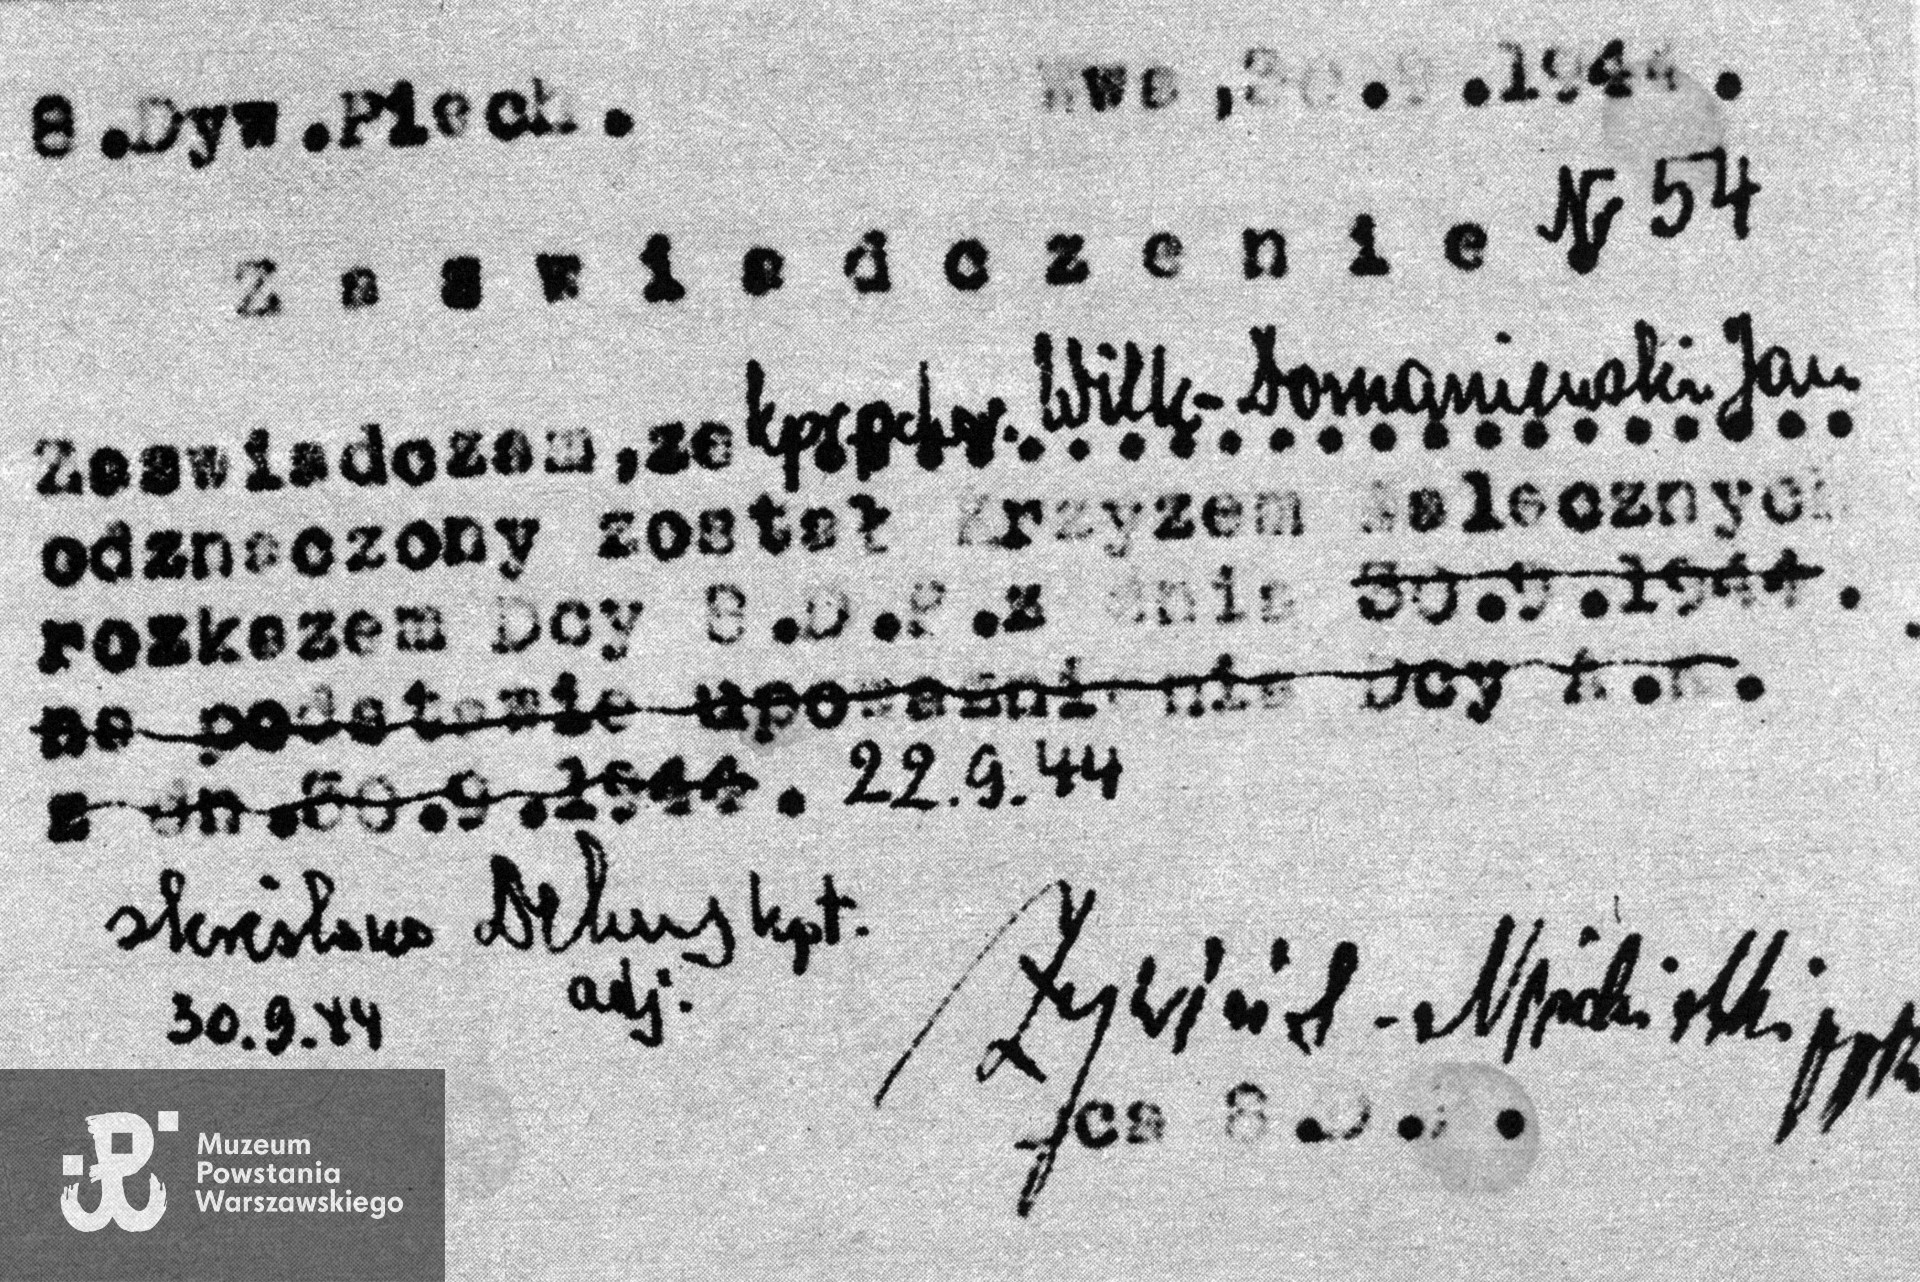 8.Dyw.Piech. Wwa,30.9.1944.
Zaswiadczenie Nr 54
Zaswiadczam,ze kpr.pchor. Wilk-Domaniewski Jan
odznaczony został Krzyzem Walecznych
rozkazem Dcy 8.D.P.z dnia 30.9.1944.
na podstawie upowaznienia Dcy A.K.
z dn.30.9.1944. 22.9.44
skreślono kpt.
adj.
30.9.44
Żywiciel - ppłk
Dca 8.D.P.
Muzeum
Powstania
Warszawskiego